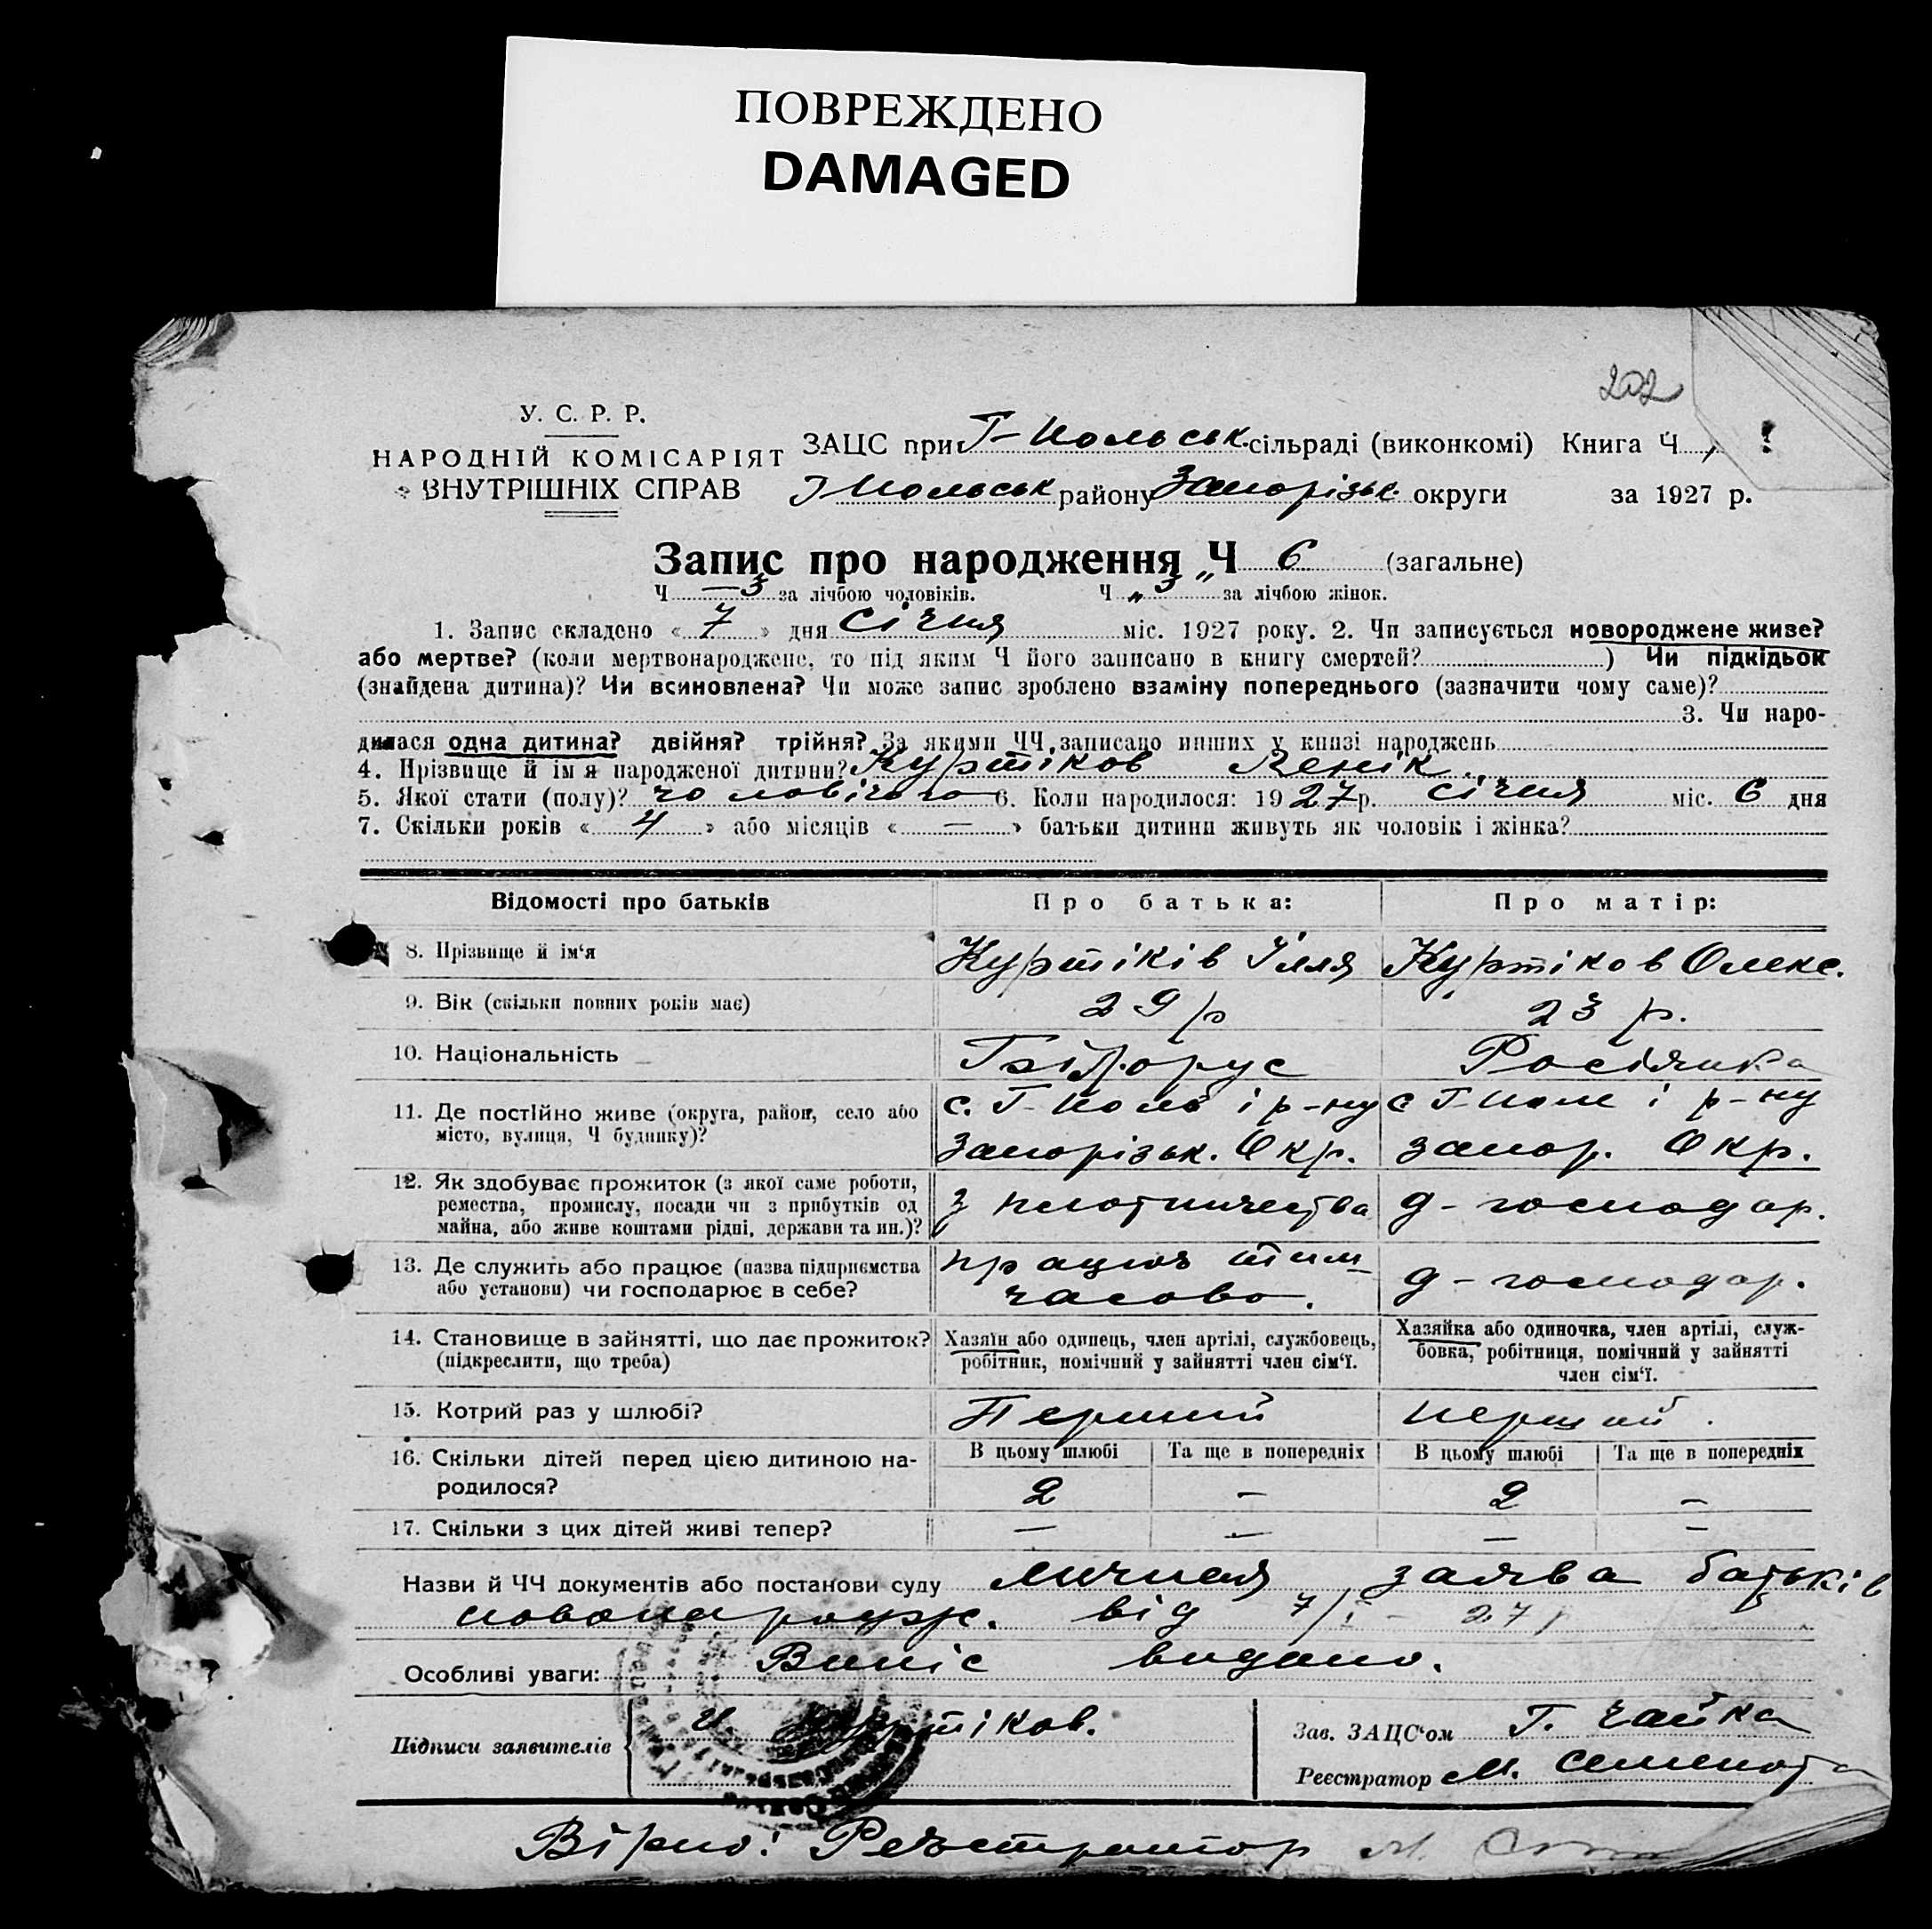 ПОВРЕЖДЕНО
DAMAGED
202
У. С. Р. Р.
НАРОДНІЙ КОМІСАРІЯТ
ВНУТРІШНІХ СПРАВ
ЗАЦС при Г-Польськ. сільраді (виконкомі) Книга Ч
Г Польськ району Запорізьк. округи за 1927 р.
Запис про народження Ч 6 (загальне)
Ч — 3 за лічбою чоловіків. Ч „ 3 „ за лічбою жінок.
1. Запис складено « 7 » дня січня міс. 1927 року. 2. Чи записується новороджене живе?
або мертве? (коли мертвонароджене, то під яким Ч його записано в книгу смертей? ) Чи підкідьок
(знайдена дитина)? Чи всиновлена? Чи може запис зроблено взаміну попереднього (зазначити чому саме)?
3. Чи наро-
дилася одна дитина? двійня? трійня? За якими ЧЧ записано инших у книзі народжень
4. Прізвище й ім'я народженої дитини? Куртіков
5. Якої стати (полу)? чоловічого 6. Коли народилося: 1927 р. січня міс. 6 дня
7. Скільки років « 4 » або місяців « — » батьки дитини живуть як чоловік і жінка?
Відомості про батьків Про батька: Про матір:
8. Прізвище й ім'я Куртіків Ілля Куртіков Олекс.
9. Вік (скільки повних років має) 29 р 23 р.
10. Національність Білорус Росіянка
11. Де постійно живе (округа, район, село або
місто, вулиця, Ч будинку)?
с. Г-Поле і р-ну
Запорізьк. Окр.
с Г-Поле і р-ну
запор. Окр.
12. Як здобуває прожиток (з якої саме роботи,
ремества, промислу, посади чи з прибутків од
майна, або живе коштами рідні, держави та ин.)?
з плотничества
д-господар.
13. Де служить або працює (назва підприємства
або установи) чи господарює в себе?
працює тим-
часово.
д-господар.
14. Становище в зайнятті, що дає прожиток?
(підкреслити, що треба)
Хазяїн або одинець, член артілі, службовець,
робітник, помічний у зайнятті член сім'ї.
Хазяйка або одиночка, член артілі, служ-
бовка, робітниця, помічний у зайнятті
член сім'ї.
15. Котрий раз у шлюбі? Перший перший.
16. Скільки дітей перед цією дитиною на-
родилося?
В цьому шлюбі Та ще в попередніх В цьому шлюбі Та ще в попередніх
2 — 2 —
17. Скільки з цих дітей живі тепер? — — — —
Назви й ЧЧ документів або постанови суду личная заява батьків
новонародж. від 7/I - 27 р
Особливі уваги: Випіс видано.
Підписи заявителів И. Куртіков.
Зав. ЗАЦС'ом Г. Чайка
Реєстратор М. Семенота
Вірно: Реєстратор М.